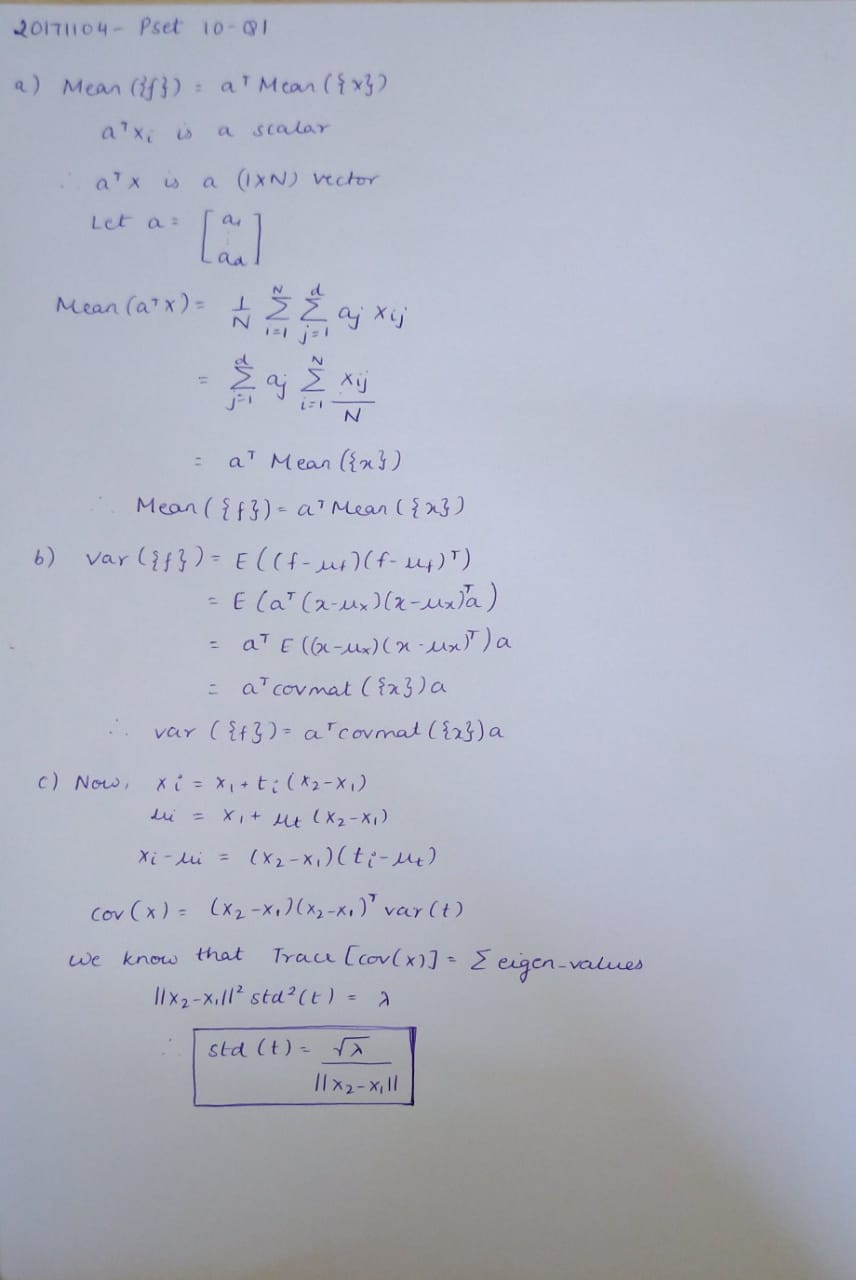 20171104 - Pset 10 - Q1
a) Mean ({f}) = aᵀ Mean ({x})
aᵀxᵢ is a scalar
∴ aᵀx is a (1×N) vector
Let a = [a₁ ⋮ a_d]
Mean (aᵀx) = 1/N Σ_{i=1}^{N} Σ_{j=1}^{d} aⱼ xᵢⱼ
= Σ_{j=1}^{d} aⱼ Σ_{i=1}^{N} xᵢⱼ/N
= aᵀ Mean ({x})
∴ Mean ({f}) = aᵀ Mean ({x})
b) var ({f}) = E ((f-μ_f)(f-μ_f)ᵀ)
= E (aᵀ (x-μₓ)(x-μₓ)ᵀa)
= aᵀ E ((x-μₓ)(x-μₓ)ᵀ) a
= aᵀ covmat ({x}) a
∴ var ({f}) = aᵀ covmat ({x}) a
c) Now, xᵢ = x₁ + tᵢ (x₂-x₁)
μᵢ = x₁ + μₜ (x₂-x₁)
xᵢ-μᵢ = (x₂-x₁)(tᵢ-μₜ)
cov (x) = (x₂-x₁)(x₂-x₁)ᵀ var (t)
we know that Trace [cov(x)] = Σ eigen-values
||x₂-x₁||² std²(t) = λ
∴ std (t) = √λ / ||x₂-x₁||